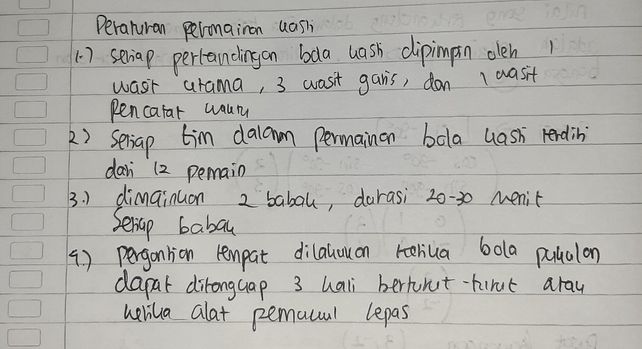 Peraturan permainan kasti
1.) setiap pertandingan bola kasti dipimpin oleh 1
wasit utama, 3 wasit garis, dan 1 wasit
pencatat waktu
2) setiap tim dalam permainan bola kasti terdiri
dari 12 pemain
3.) dimainkan 2 babak, durasi 20-30 menit
setiap babak
4.) pergantian tempat dilakukan ketika bola pukulan
dapat ditangkap 3 kali berturut-turut atau
ketika alat pemukul lepas